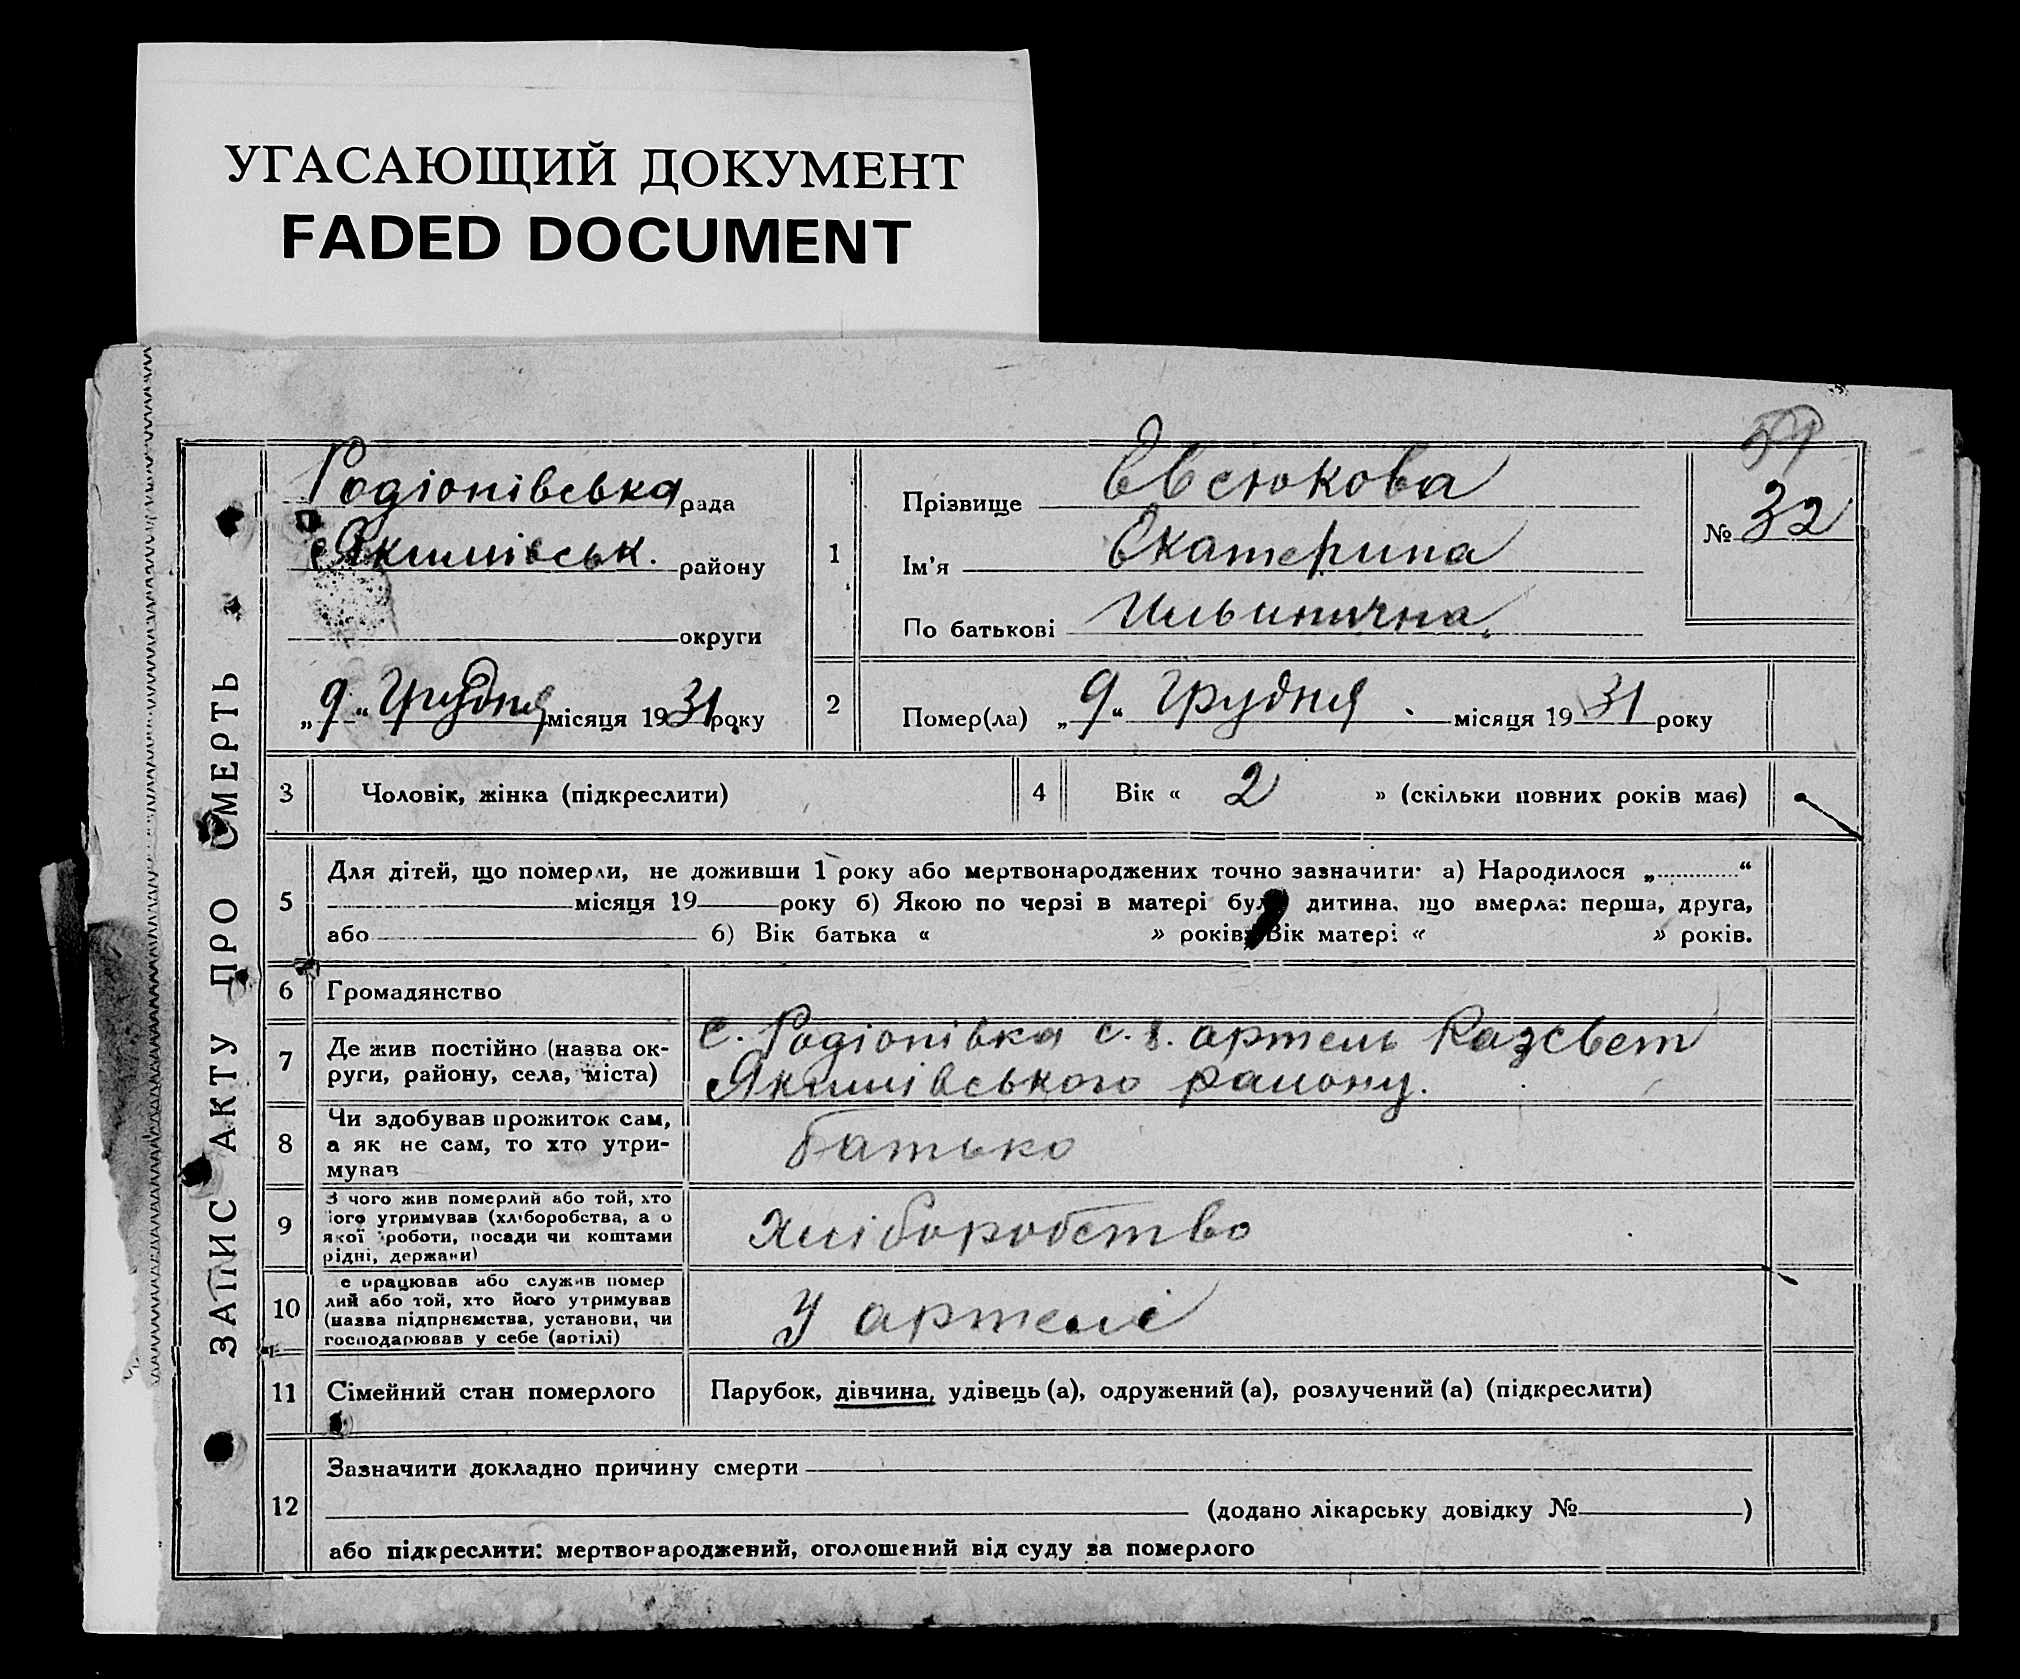 УГАСАЮЩИЙ ДОКУМЕНТ
FADED DOCUMENT
ЗАПИС АКТУ ПРО СМЕРТЬ
Родіонівська рада
Якимівськ. району
округи
„9“ Грудня місяця 1931 року
1
Прізвище Евсюкова
Ім'я Екатерина
По батькові Ильинична.
№ 32
2
Помер(ла) „9“ Грудня . місяця 1931 року
3 Чоловік, жінка (підкреслити)
4 Вік « 2 » (скільки повних років має)
5 Для дітей, що померли, не доживши 1 року або мертвонароджених точно зазначити: а) Народилося „ “
місяця 19 року б) Якою по черзі в матері була дитина, що вмерла: перша, друга,
або б) Вік батька « » років Вік матері « » років.
6 Громадянство
7 Де жив постійно (назва ок-
руги, району, села, міста)
с. Родіонівка с. г. артель Разсвет
Якимівського району.
8 Чи здобував прожиток сам,
а як не сам, то хто утри-
мував
батько
9 З чого жив померлий або той, хто
його утримував (хліборобства, а о
якої роботи, посади чи коштами
рідні, держави)
Хліборобство
10 е працював або служив помер
лий або той, хто його утримував
(назва підприємства, установи, чи
господарював у себе (артілі)
У артелі
11 Сімейний стан померлого
Парубок, дівчина, удівець (а), одружений (а), розлучений (а) (підкреслити)
12 Зазначити докладно причину смерти
(додано лікарську довідку № )
або підкреслити: мертвонароджений, оголошений від суду за померлого